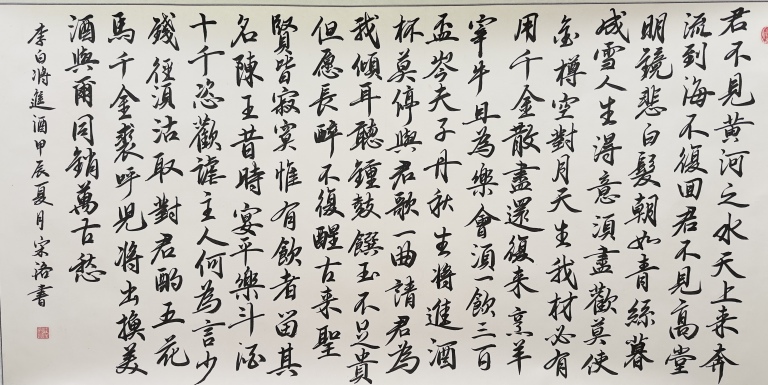 君不見黃河之水天上来奔
流到海不復回君不見高堂
明鏡悲白髮朝如青絲暮
成雪人生得意須盡歡莫使
金樽空對月天生我材必有
用千金散盡還復来烹羊
宰牛且為樂會須一飲三百
盃岑夫子丹秋生將進酒
杯莫停與君歌一曲請君為
我傾耳聽鍾鼓饌玉不足貴
但愿長醉不復醒古来聖
賢皆寂寞惟有飲者留其
名陳王昔時宴平樂斗酒
十千恣歡謔主人何為言少
錢徑須沽取對君酌五花
馬千金裘呼児將出換美
酒與爾同銷萬古愁
李白將進酒甲辰夏月宋洛書